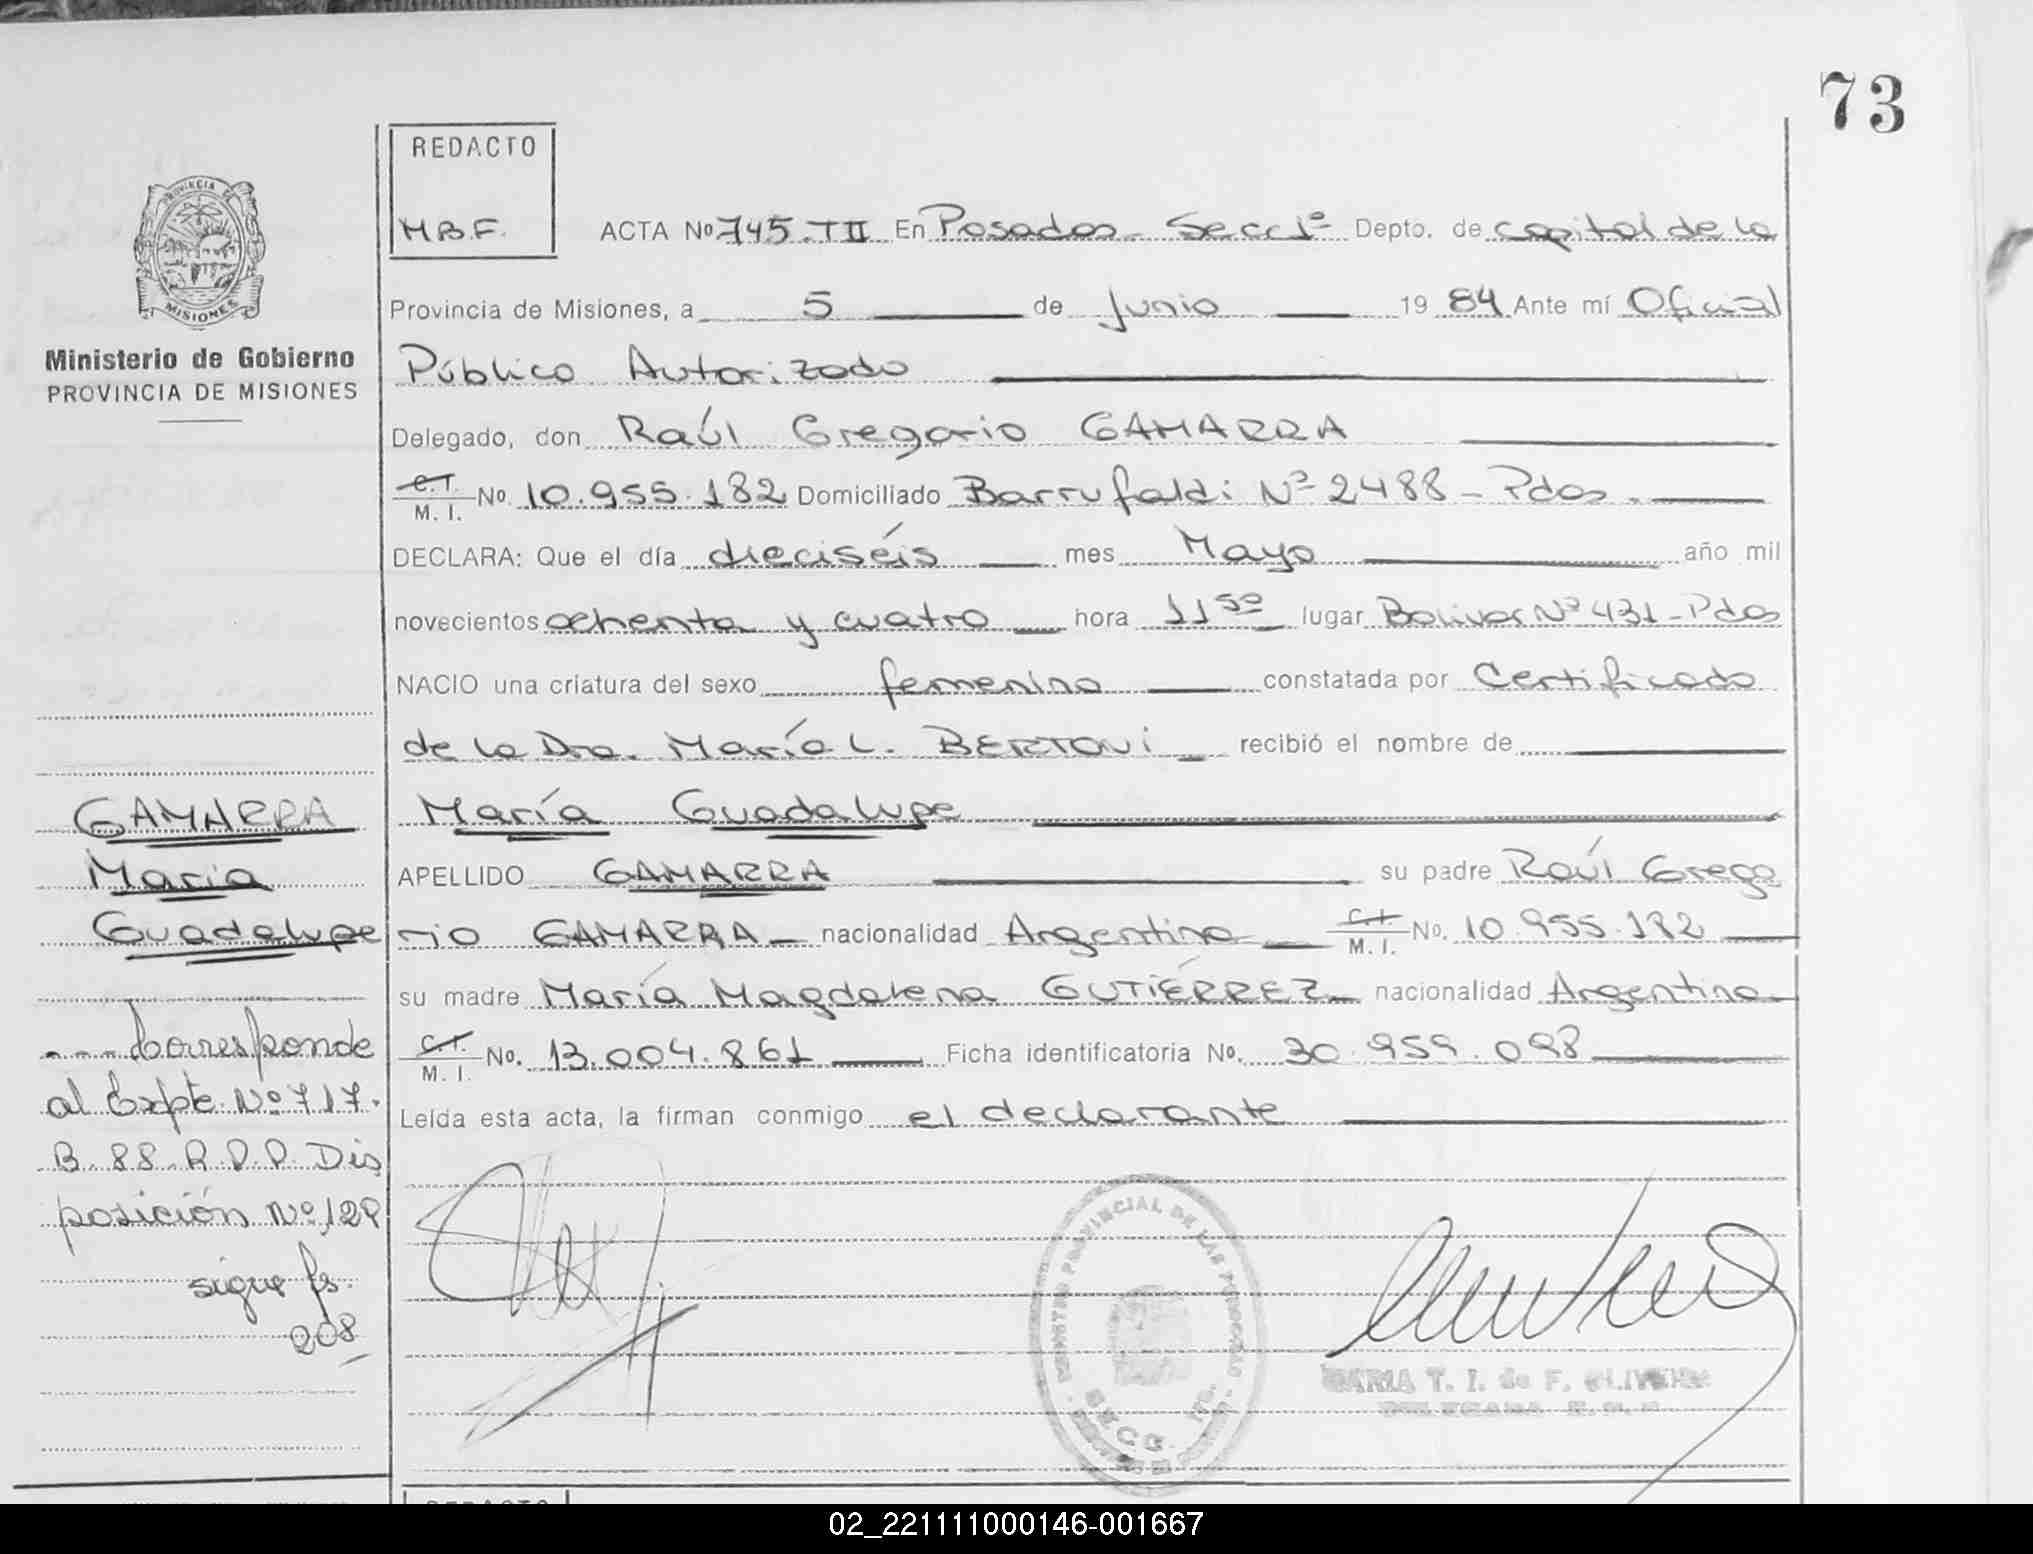 73
REDACTO
H.B.F.
PROVINCIA DE
MISIONES
Ministerio de Gobierno
PROVINCIA DE MISIONES
ACTA Nº 745. TII En Posadas - Secc 1ª Depto. de capital de la
Provincia de Misiones, a 5 de Junio 19 84 Ante mí Oficial
Público Autorizado
Delegado, don Raúl Gregorio GAMARRA
C.I. M. I. No. 10.955.182 Domiciliado Barrufaldi Nº 2488 - Pdas.
DECLARA: Que el día dieciséis mes Mayo año mil
novecientos ochenta y cuatro hora 11 50 lugar Bolívar Nº 431 - Pdas
NACIO una criatura del sexo femenino constatada por Certificado
de la Dra. María L. BERTONI recibió el nombre de
María Guadalupe
APELLIDO GAMARRA su padre Raúl Grego
rio GAMARRA nacionalidad Argentina C.I. M. I. No. 10.955.182
su madre María Magdalena GUTIÉRREZ nacionalidad Argentina
C.I. M. I. No. 13.004.861 Ficha identificatoria No. 30.959.098
Leída esta acta, la firman conmigo el declarante
GAMARRA
María
Guadalupe
--- Corresponde
al Expte. Nº 717.
B. 88 R.P.P. Dis
posición Nº 128
sigue fs.
208
REGISTRO PROVINCIAL DE LAS PERSONAS
SECC. 1ª
MARIA T. I. de F. OLIVEIRA
DELEGADA
REDACTO
02_221111000146-001667